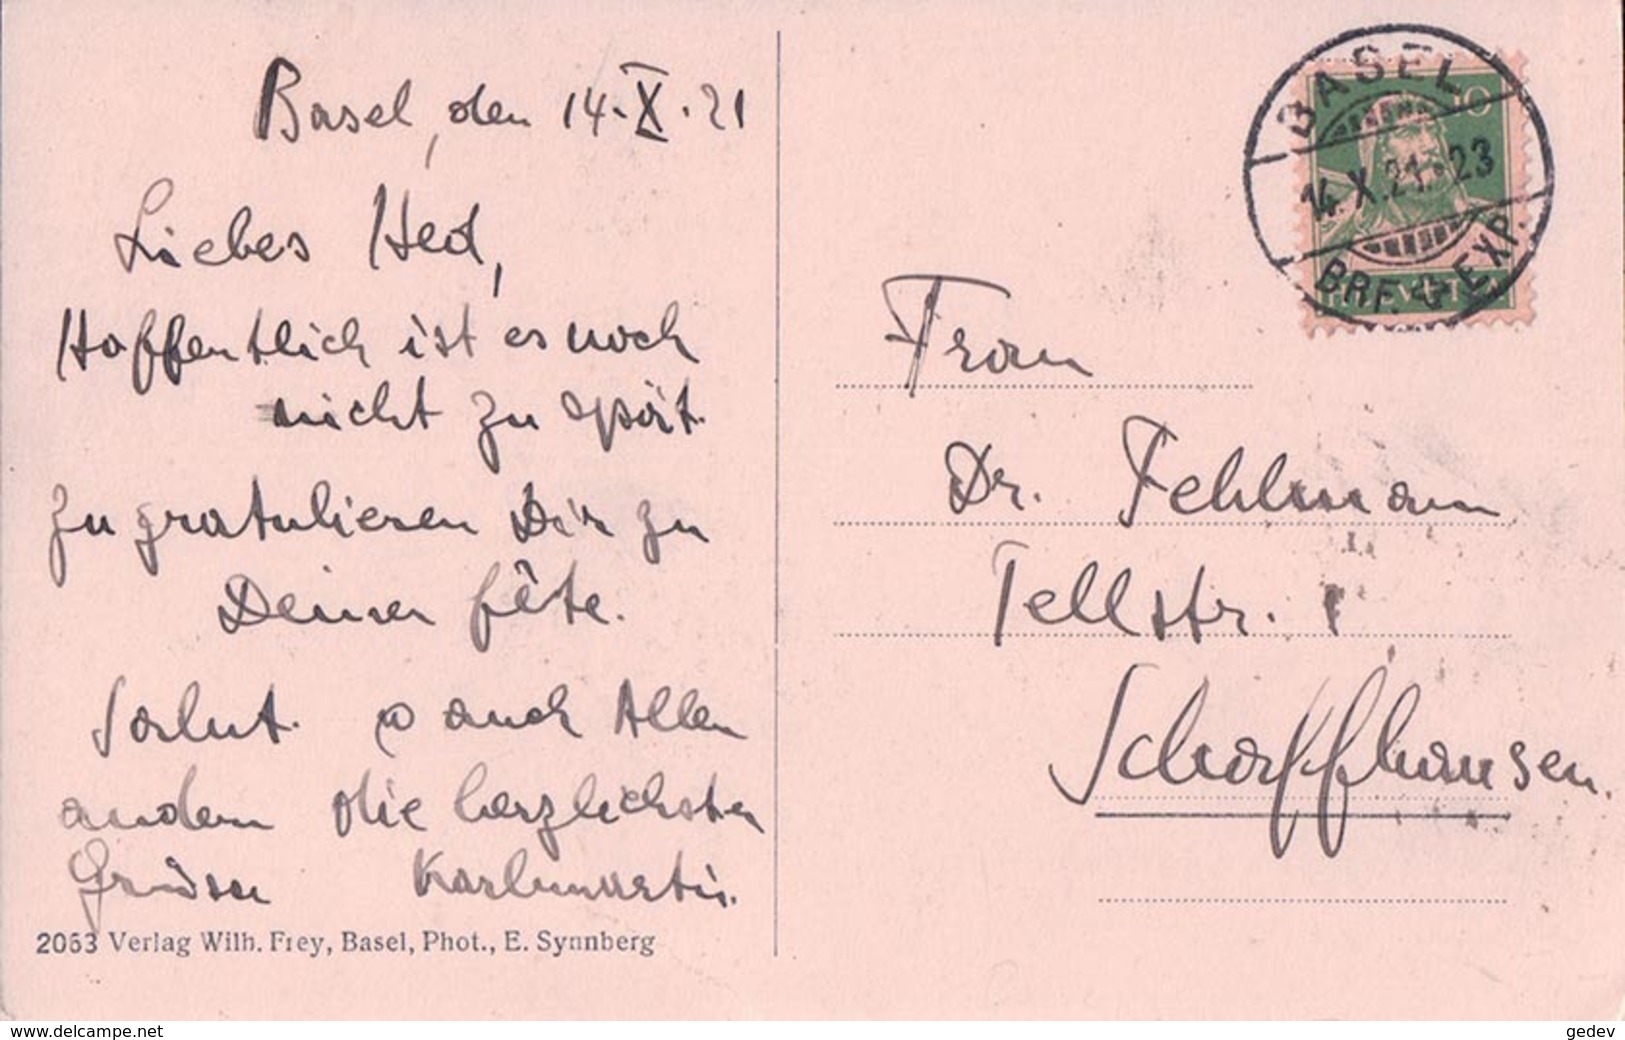 Basel, den 14.X.21
Liebes Hed,
Hoffentlich ist es noch
nicht zu spät
zu gratulieren Dir zu
Deiner fête.
Salut. auch Allen
andern die herzlichsten
Grüsse
2063 Verlag Wilh. Frey, Basel, Phot., E. Synnberg
BASEL
14.X.21.-23
BRF. EXP.
10
HELVETIA
Frau
Dr. Fehlmann
Tellstr. 1
Schaffhausen.
www.delcampe.net
gedev